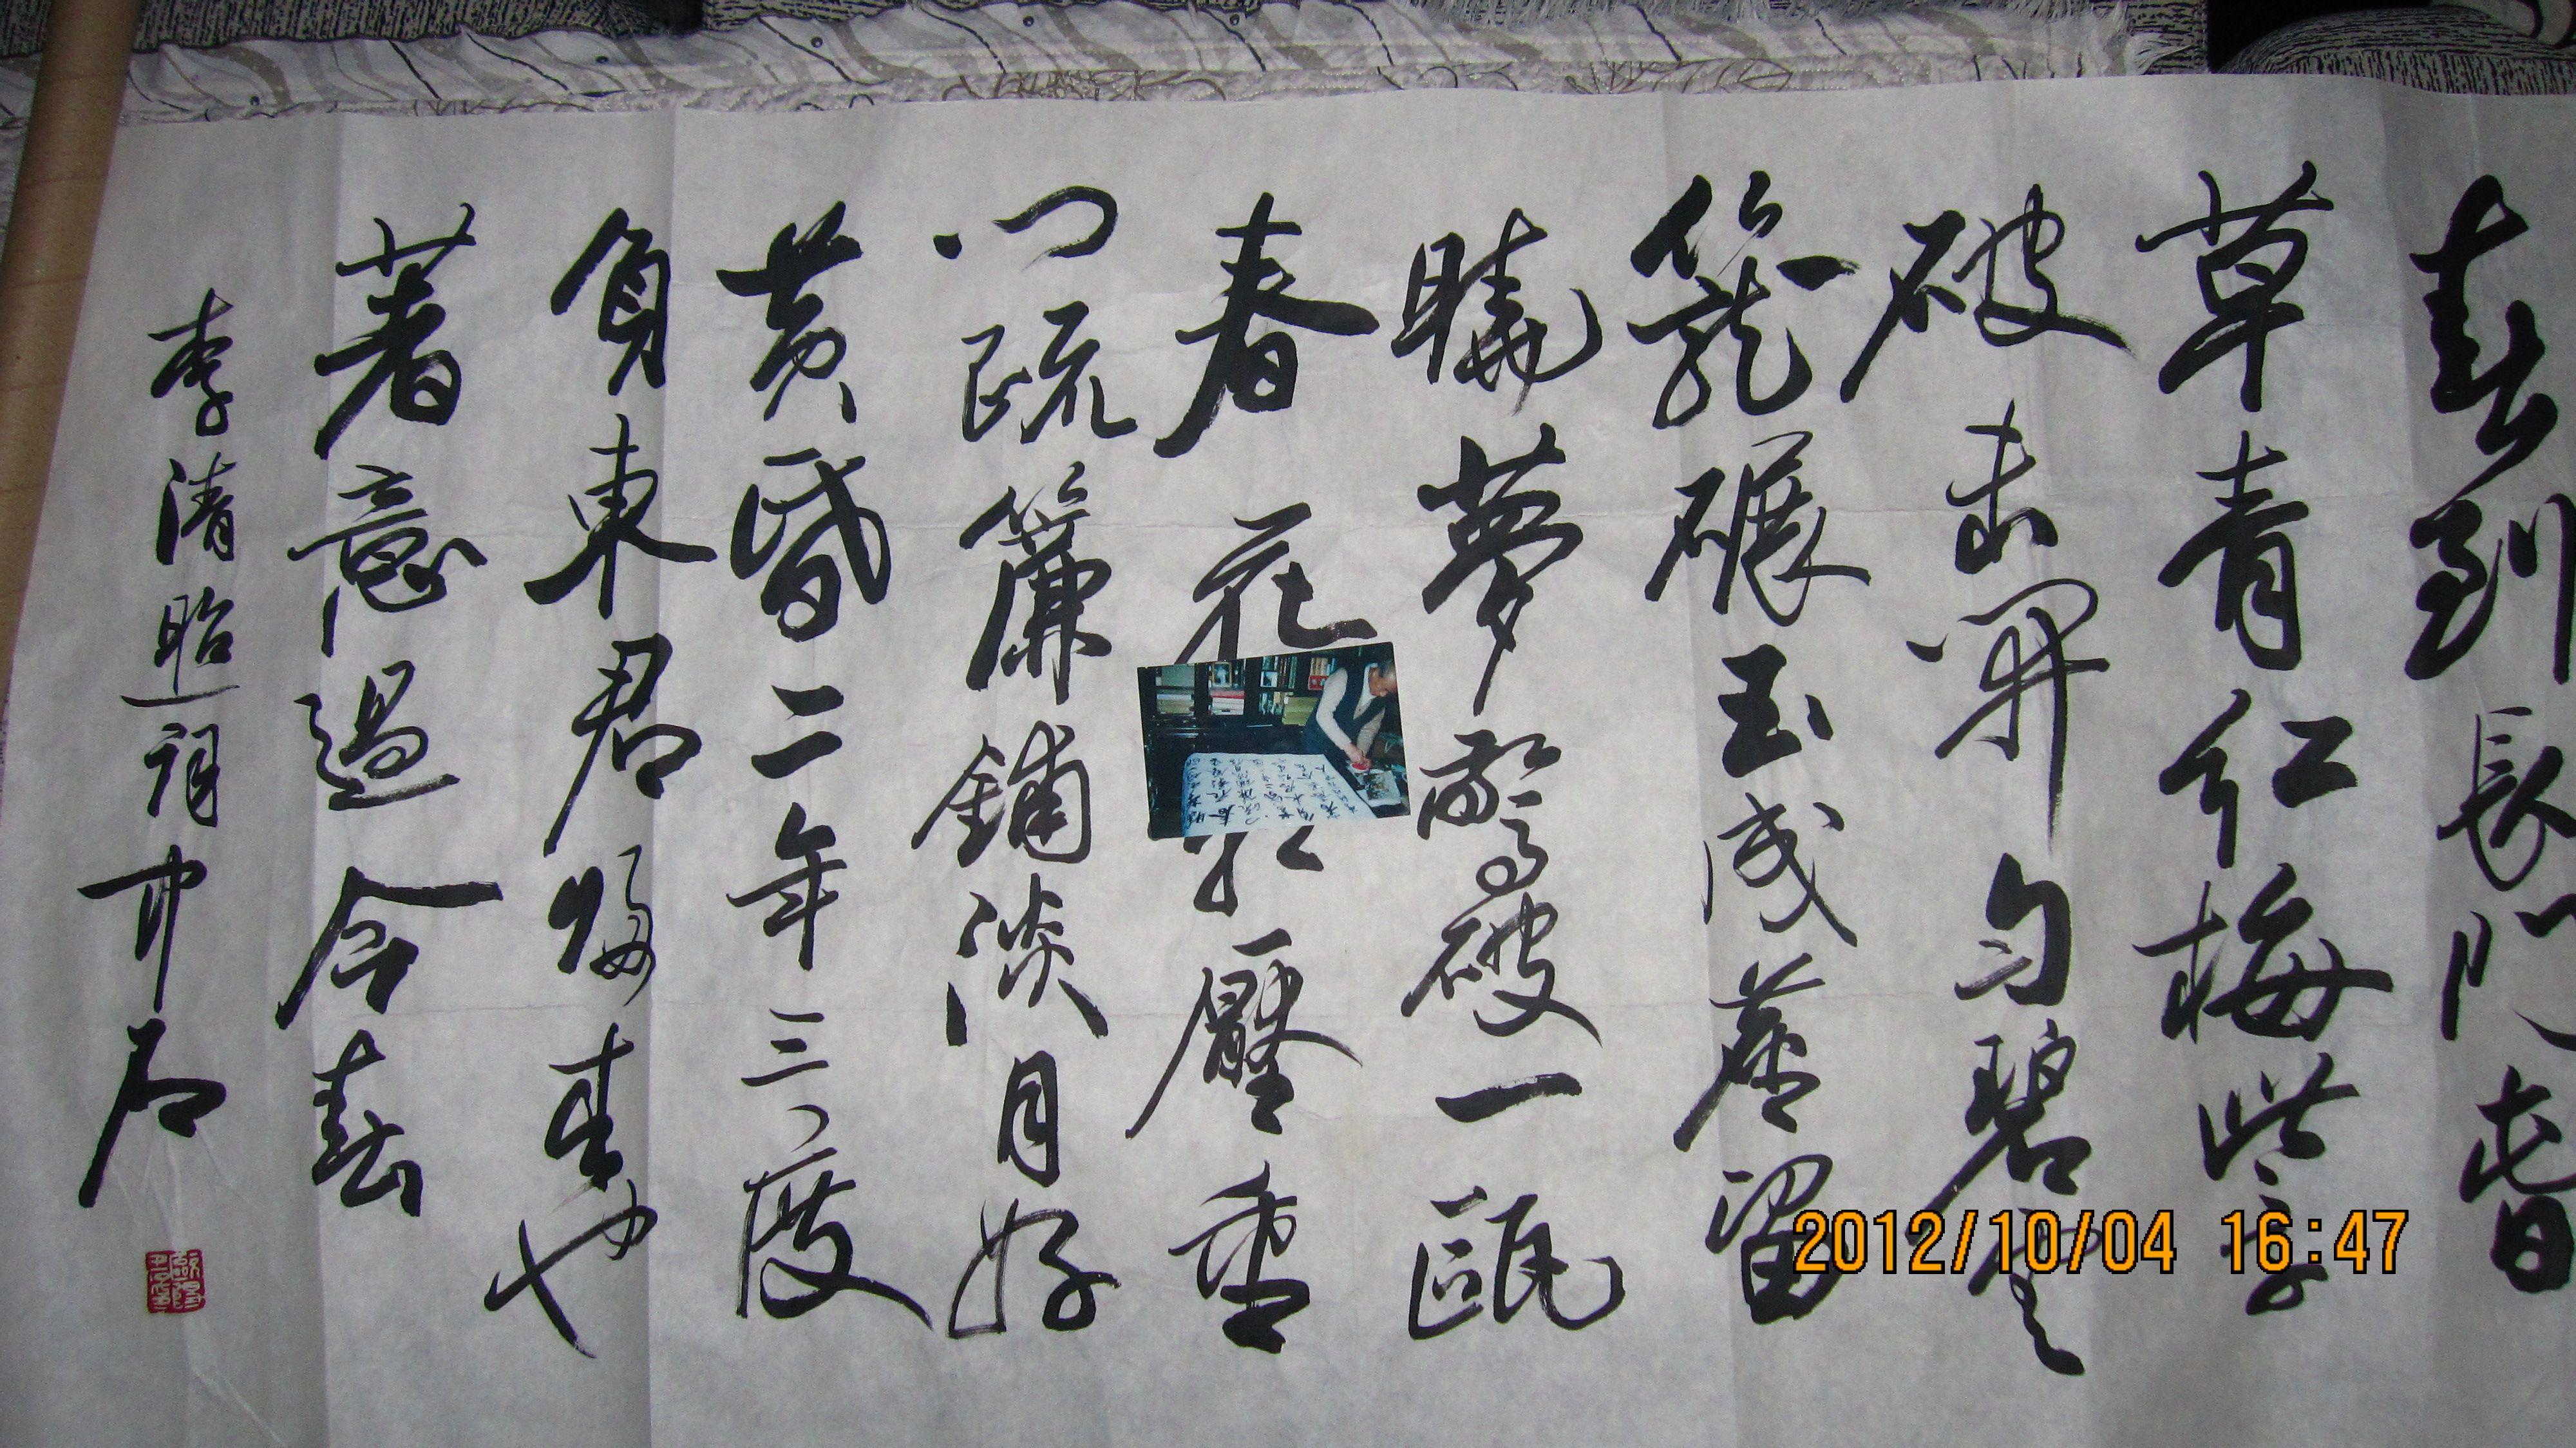 春到長門春
草青紅梅些子
破未開勻碧雲
籠碾玉成塵留
曉夢驚破一甌
春花壓重
門疏簾鋪淡月好
黃昏二年三度
負東君歸來也
著意過今春
李清照詞中石
2012/10/04 16:47